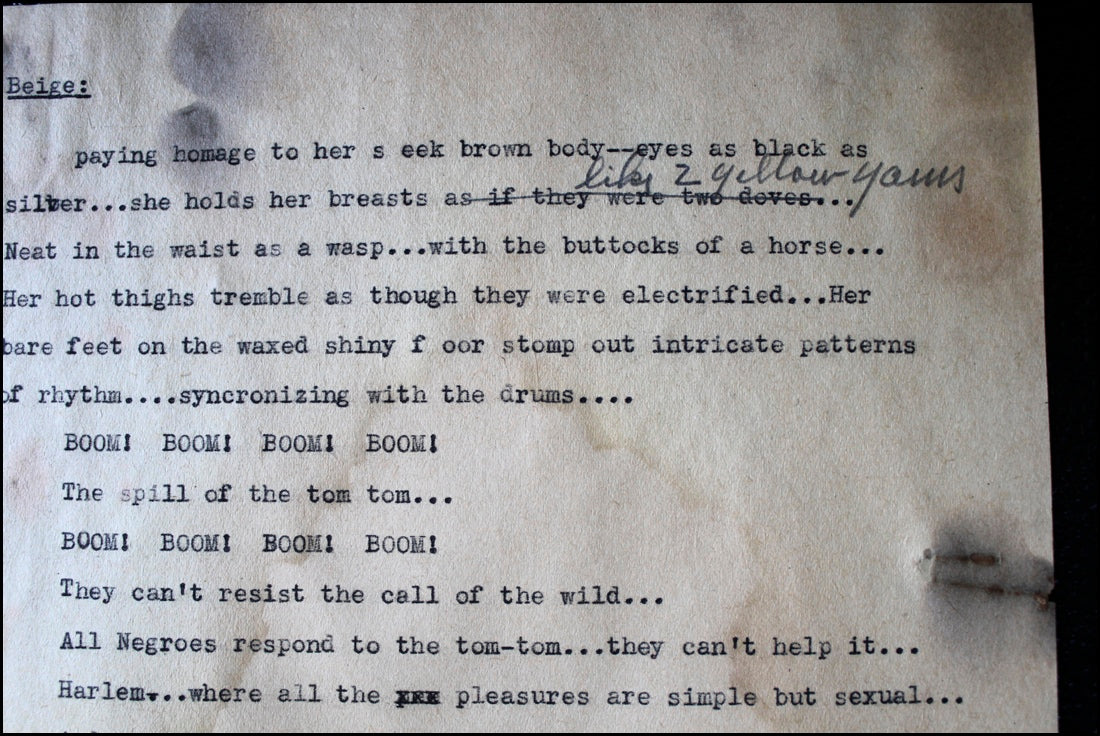 Beige:
paying homage to her s eek brown body--eyes as black as
like 2 yellow yams
silver...she holds her breasts as if they were two doves...
Neat in the waist as a wasp...with the buttocks of a horse...
Her hot thighs tremble as though they were electrified...Her
bare feet on the waxed shiny f oor stomp out intricate patterns
of rhythm....syncronizing with the drums....
BOOM! BOOM! BOOM! BOOM!
The spill of the tom tom...
BOOM! BOOM! BOOM! BOOM!
They can't resist the call of the wild...
All Negroes respond to the tom-tom...they can't help it...
Harlem...where all the xxx pleasures are simple but sexual...